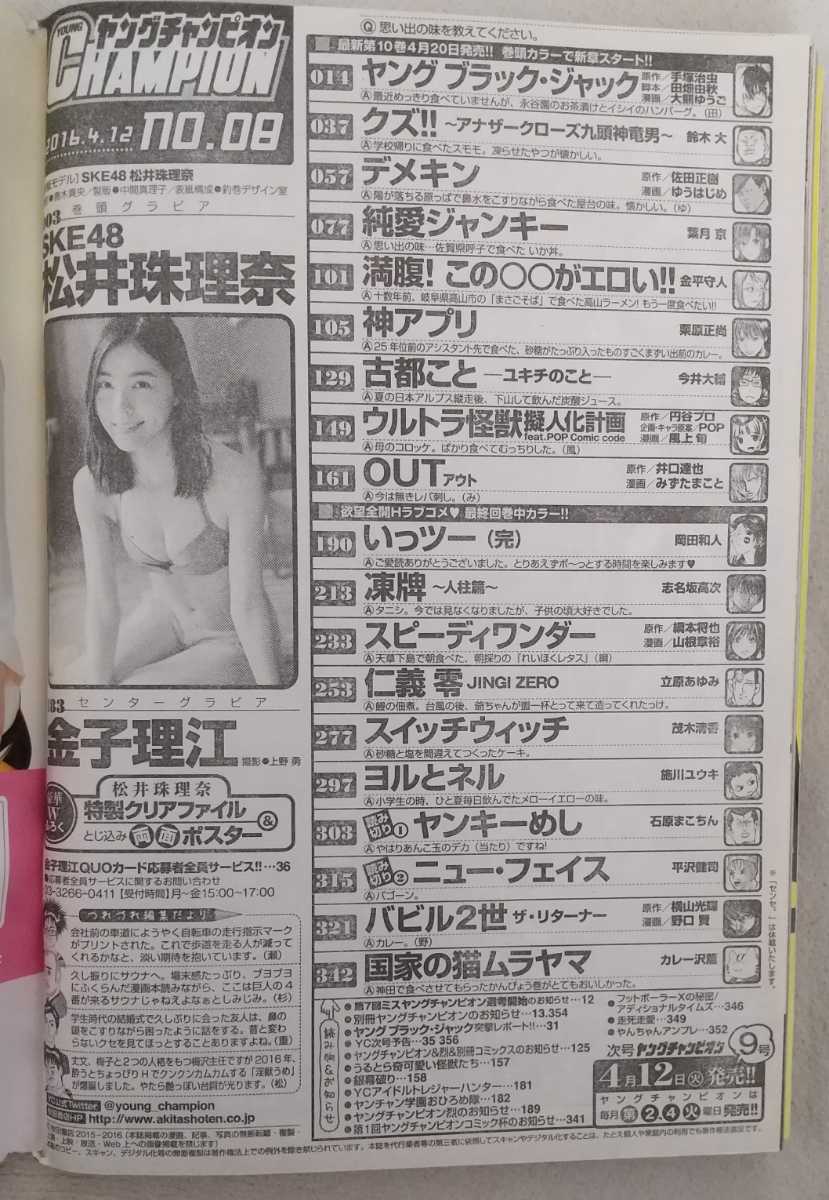 YOUNG
ヤングチャンピオン
CHAMPION
2016.4.12
no.08
SKE48 松井珠理奈
巻頭グラビア
SKE48
松井珠理奈
センターグラビア
金子理江
撮影●上野 勇
松井珠理奈
特製クリアファイル
&
とじ込み
ポスター
金子理江QUOカード応募者全員サービス!!…36
●応募者全員サービスに関するお問い合わせ
03-3266-0411【受付時間】月〜金15:00〜17:00
つれづれ編集だより
会社前の車道にようやく自転車の走行指示マーク
がプリントされた。これで歩道を走る人が減って
くれるかなと、淡い期待を抱いています。(瀬)
久し振りにサウナへ。場末感たっぷり、ブヨブヨ
にふくらんだ漫画本読みながら、ここは巨人の4
番が来るサウナじゃねえよなぁとしみじみ。(杉)
学生時代の結婚式で久しぶりに会った友人は、鼻の
頭をこすりながら困ったように話をする。昔と変わ
らないクセを見てほっとすることありますよね。(重)
丈文、梅子と2つの人格をもつ梅沢主任ですが2016年、
酔うとちょっぴりHでクンクンカムカムする「淫獣うめ」
が爆誕しました。やたら艶っぽい台詞が光ります。(松)
YC公式Twitter @young_champion
http://www.akitashoten.co.jp
Q 思い出の味を教えてください。
最新第10巻4月20日発売!! 巻頭カラーで新章スタート!!
014 ヤング ブラック・ジャック 原作/手塚治虫 脚本/田畑由秋 漫画/大熊ゆうご
A 最近めっきり食べていませんが、永谷園のお茶漬けとイシイのハンバーグ。(田)
037 クズ!! 〜アナザークローズ九頭神竜男〜 鈴木 大
A 学校帰りに食べたスモモ。凍らせたやつが懐かしい。
057 デメキン 原作/佐田正樹 漫画/ゆうはじめ
A 陽が落ちる原っぱで鼻水をこすりながら食べた屋台の味。懐かしい。(ゆ)
077 純愛ジャンキー 葉月 京
A 思い出の味…佐賀県呼子で食べた いか丼。
101 満腹! この〇〇がエロい!! 金平守人
A 十数年前、岐阜県高山市の「まさごそば」で食べた高山ラーメン! もう一度食べたい!!
105 神アプリ 栗原正尚
A 25年位前のアシスタント先で食べた、砂糖がたっぷり入ったものすごくまずい出前のカレー。
129 古都こと ―ユキチのこと― 今井大輔
A 夏の日本アルプス縦走後、下山して飲んだ炭酸ジュース。
149 ウルトラ怪獣擬人化計画 feat.POP Comic code 原作/円谷プロ 企画・キャラ原案/POP 漫画/風上 旬
A 母のコロッケ。ばかり食べてむっちりした。(風)
161 OUT アウト 原作/井口達也 漫画/みずたまこと
A 今は無きレバ刺し。(み)
欲望全開Hラブコメ♥ 最終回巻中カラー!!
190 いっツー(完) 岡田和人
A ご愛読ありがとうございました。とりあえずボ〜っとする時間を楽しみます♥
213 凍牌 〜人柱篇〜 志名坂高次
A タニシ。今では見なくなりましたが、子供の頃大好きでした。
233 スピーディワンダー 原作/綱本将也 漫画/山根章裕
A 天草下島で朝食べた、朝採りの「れいほくレタス」(綱)
253 仁義 零 JINGI ZERO 立原あゆみ
A 鰻の佃煮。台風の後、爺ちゃんが畚一杯とって来て造ってくれたっけ。
277 スイッチウィッチ 茂木清香
A 砂糖と塩を間違えてつくったケーキ。
297 ヨルとネル 施川ユウキ
A 小学生の時、ひと夏毎日飲んでたメローイエローの味。
303 読み切り1 ヤンキーめし 石原まこちん
A やはりあんこ玉のデカ(当たり)ですね!
315 読み切り2 ニュー・フェイス 平沢健司
A パゴーン。
321 バビル2世 ザ・リターナー 原作/横山光輝 漫画/野口 賢
A カレー。(野)
342 国家の猫ムラヤマ カレー沢薫
A 神田で食べさせてもらったかんぴょう巻がとてもおいしかった。
※「センセ。」は休載いたします。
読み物&お知らせ
●第7回ミスヤングチャンピオン選考開始のお知らせ…12
●別冊ヤングチャンピオンのお知らせ…13.354
●ヤング ブラック・ジャック突撃レポート!!…31
●YC次号予告…35 356
●ヤングチャンピオン&烈&別冊コミックスのお知らせ…125
●うるとら奇可愛い怪獣たち…157
●銀幕破り…158
●YCアイドルトレジャーハンター…181
●ヤンチャン学園おひろめ隊…182
●ヤングチャンピオン烈のお知らせ…189
●第1回ヤングチャンピオンコミック杯のお知らせ…341
●フットボーラーXの秘密/
アディショナルタイムズ…346
●走死走愛…349
●やんちゃんアンプレ…352
次号 ヤングチャンピオン 9号
4月12日(火)発売!!
ヤングチャンピオンは
毎月第2,4火曜日発売!!